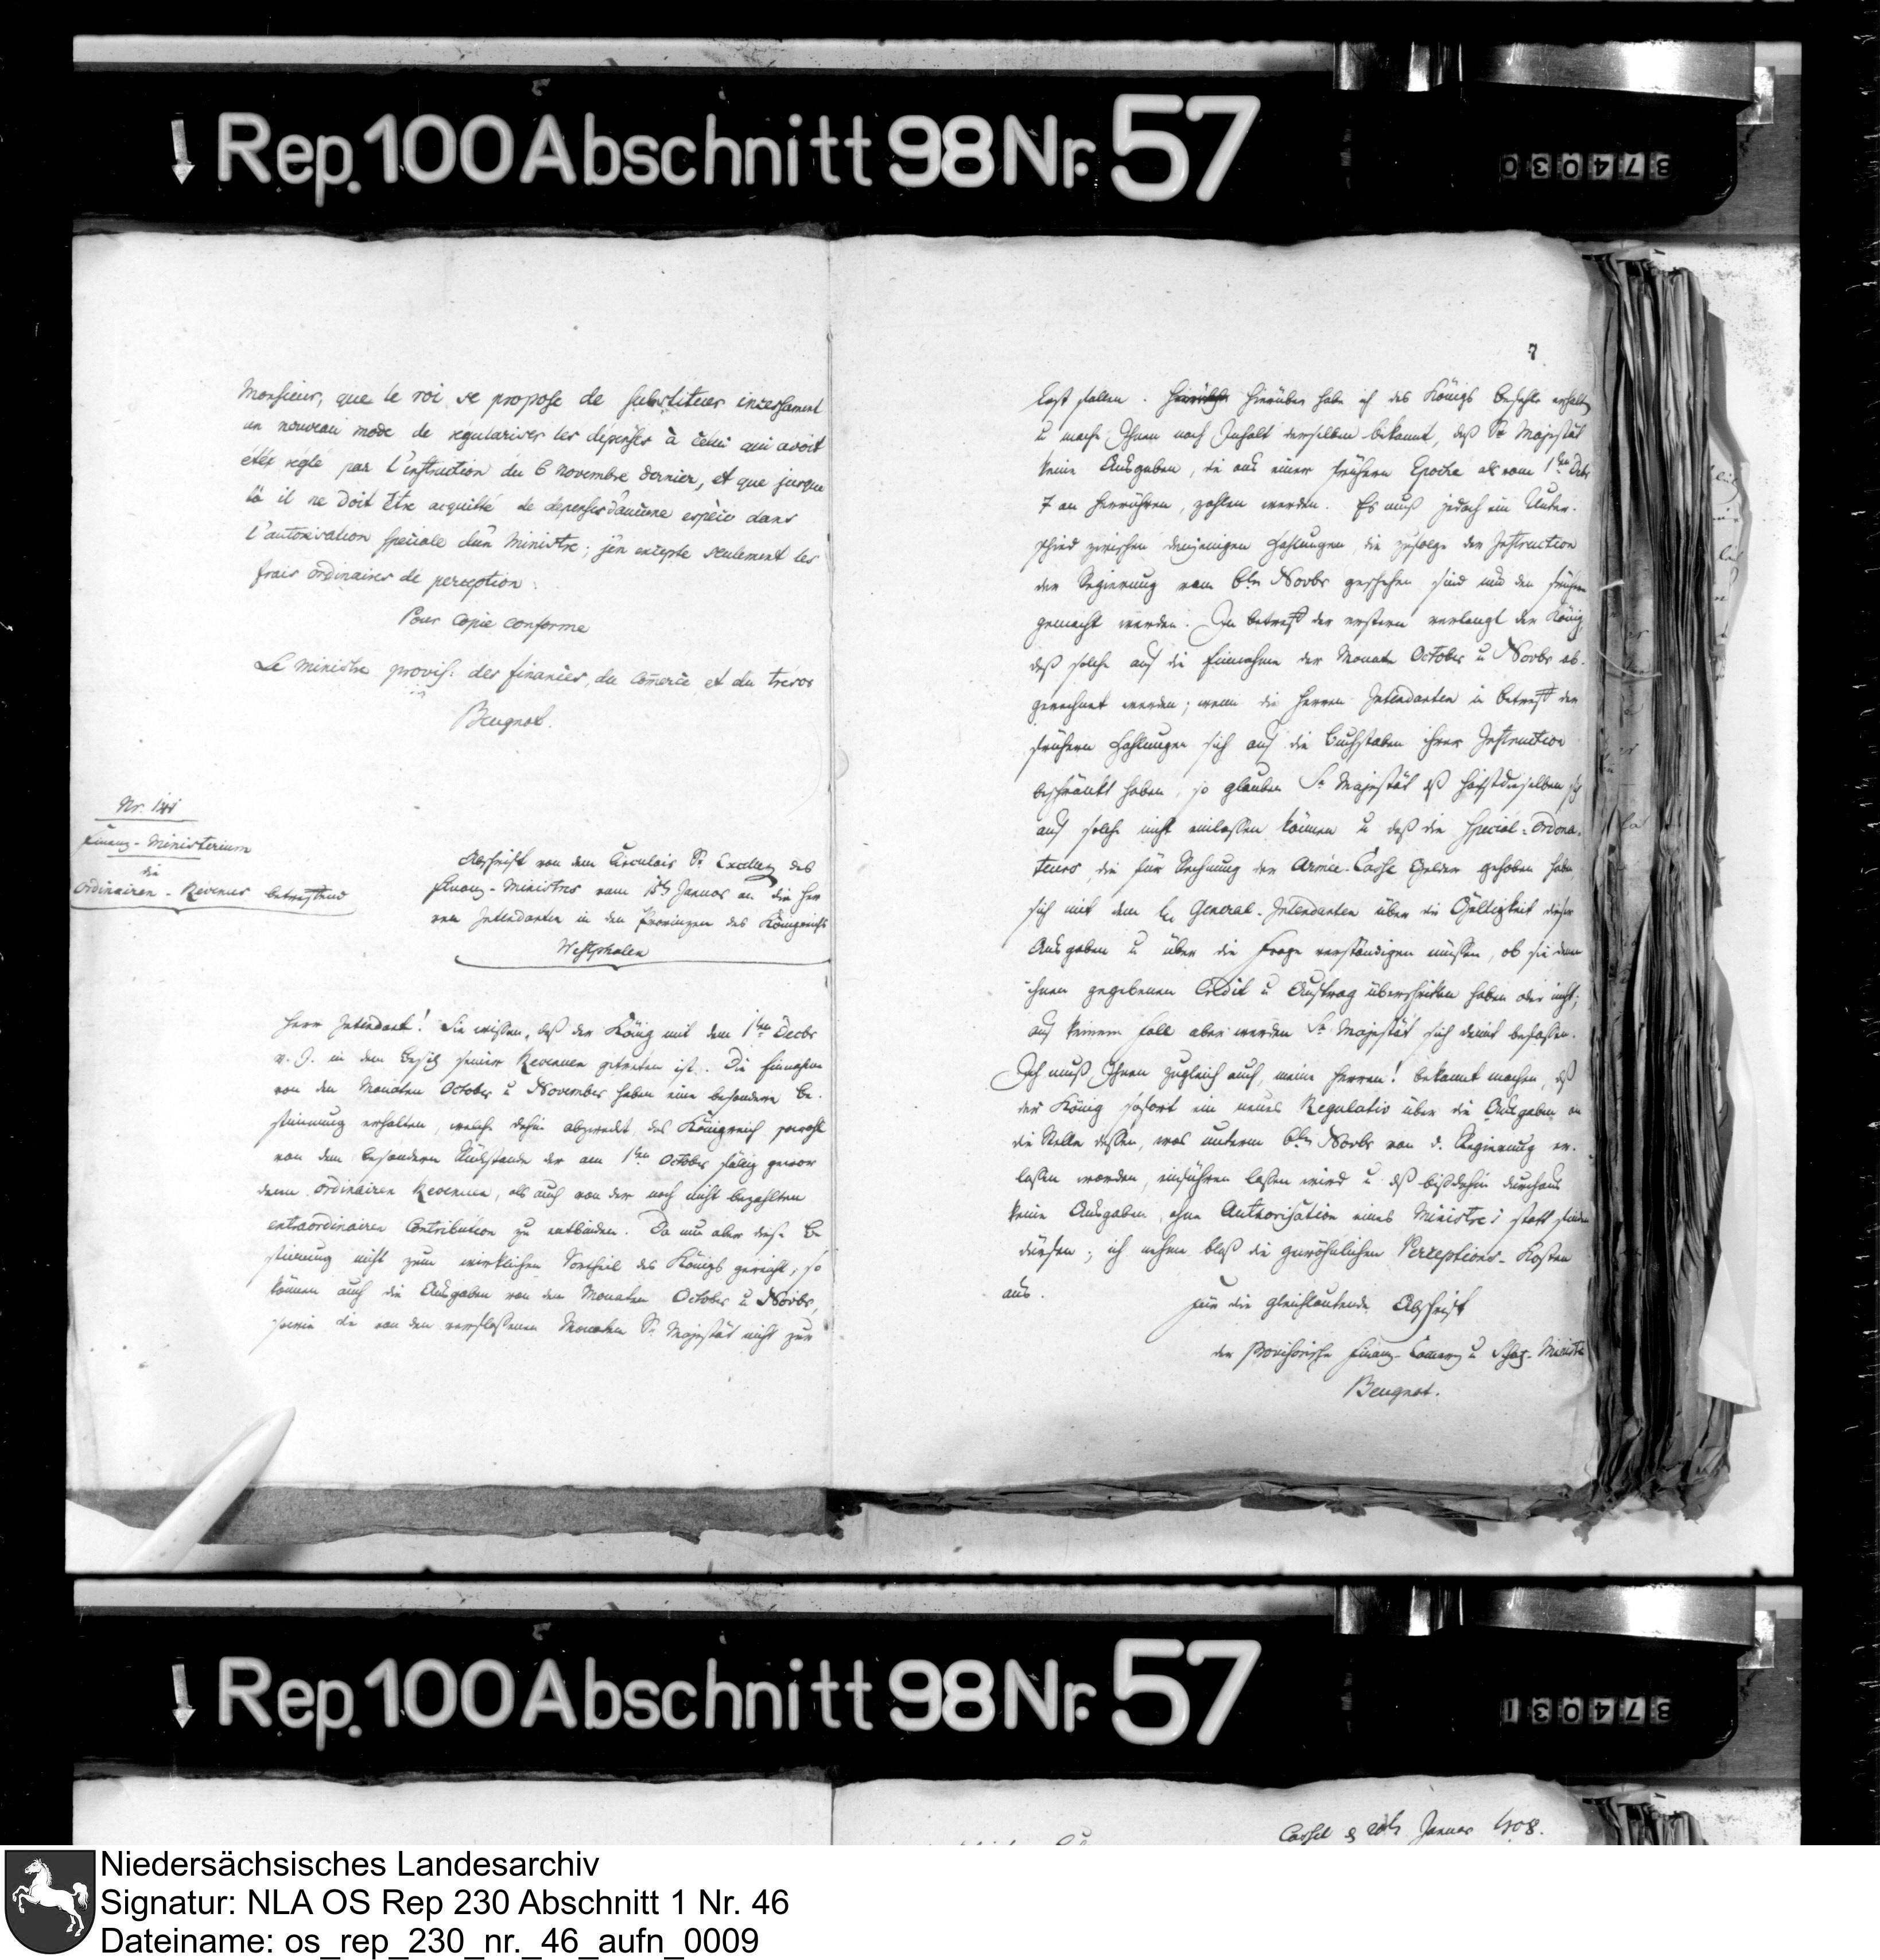 Rep. 100 Abschnitt 98 Nr. 57
874030
Monsieur, que le roi se propose de substituer incessament
un nouveau mode de régulariser les dépenses à celui qui avoit
étéz reglé par l'instruction du 6 novembre dernier, et que jusque
là il ne doit être acquitté de depenses d'aucune espèce dans
l'autorisation speciale d'un Ministre; j'en excepte seulement les
frais ordinaires de perception.
Pour Copie conforme
Le ministre provis: des finances, du Comerce et du trésor
Beugnot.
Nr.
Finanz-Ministerium
die
ordinairen-Revenus betreffend
Abschrift von dem Circulair Sr. Excellenz des
Finanz-Ministres vom 15ts Januar an die Her
ren Intendanten in den Provinzen des Königreichs
Westphalen
Herr Intendant! Sie wissen, daß der König mit dem 1ten Decbr
v. J. in den Besitz seiner Revenuen getreten ist. Die Einnahme
von den Monaten October u November haben eine besondere Be-
stimmung erhalten, welche dahin abzweckt, das Königreich sowohl
von dem besondern Rückstande der am 1ten October fällig gewor
denen ordinairen Revenuen, als auch von der noch nicht bezahlten
extraordinairen Contribution zu entbinden. Da nun aber diese Be
stimung nicht zum wirklichen Vortheil des Königs gereicht; so
können auch die Ausgaben von den Monaten October u Novbr,
sowie die von den verflossenen Monaten Sr. Majestät nicht zur
7
Last fallen. hierüber habe ich des Königs Befehle erhalten
u mache Ihnen nach Inhalt derselben bekannt, daß Sr Majestät
keine Ausgaben, die aus einer frühern Epoche als vom 1ten Decbr
7 an herrühren, zahlen werden. Es muß jedoch ein Unter-
schied zwischen denjenigen Zahlungen, die zufolge der Instruction
der Regierung vom 6ten Novbr geschehen sind und den frühern
gemacht werden. In betreff der erstern verlangt der König,
daß solche auf die Einnahme der Monate October u Novbr ab-
gerechnet werden; wenn die Herren Intendanten in betreff der
frühern Zahlungen sich auf die Buchstaben ihrer Instruction
beschränkt haben, so glauben Sr Majestät dß Höchstdieselben sich
auf solche nicht einlassen können u daß die Special-Ordona-
teurs, die für Rechnung der Armée-Casse Gelder gehoben haben,
sich mit dem General-Intendanten über die Gültigkeit dieser
Ausgaben u über die Frage verständigen müssen, ob sie den
ihnen gegebenen Credit u Auftrag überschritten haben oder nicht;
auf keinem Fall aber werden Sr Majestät sich damit befassen.
Ich muß Ihnen zugleich auch, meine Herren! bekannt machen, dß
der König sofort ein neues Regulativ über die Ausgaben an
die Stelle dessen, was unterm 6ten Novbr von d. Regierung er-
lassen worden, einführen lassen wird u dß bis dahin durchaus
keine Ausgaben, ohne Authorisation eines Ministre's statt finden
dürfen; ich nehme bloß die gewöhnlichen Perceptions-Kosten
aus.
für die gleichlautende Abschrift
der Provisorische Finanz-Commerz u Schaz-Minister
Beugnot.
Rep. 100 Abschnitt 98 Nr. 57
874031
Cassel d 20ts Januar 1808.
Niedersächsisches Landesarchiv
Signatur: NLA OS Rep 230 Abschnitt 1 Nr. 46
Dateiname: os_rep_230_nr._46_aufn_0009